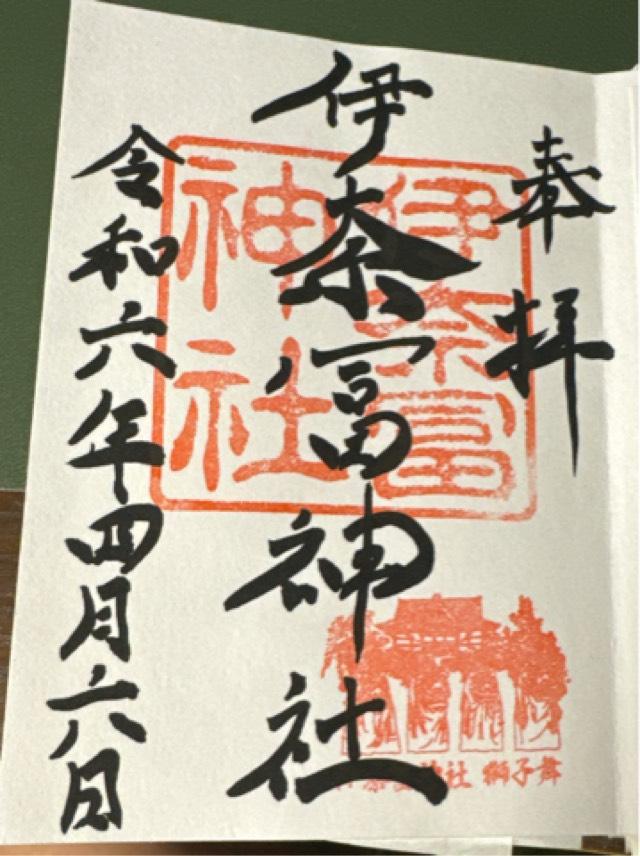 奉拝
伊奈冨神社
令和六年四月六日
伊奈冨
神社
神社 獅子舞